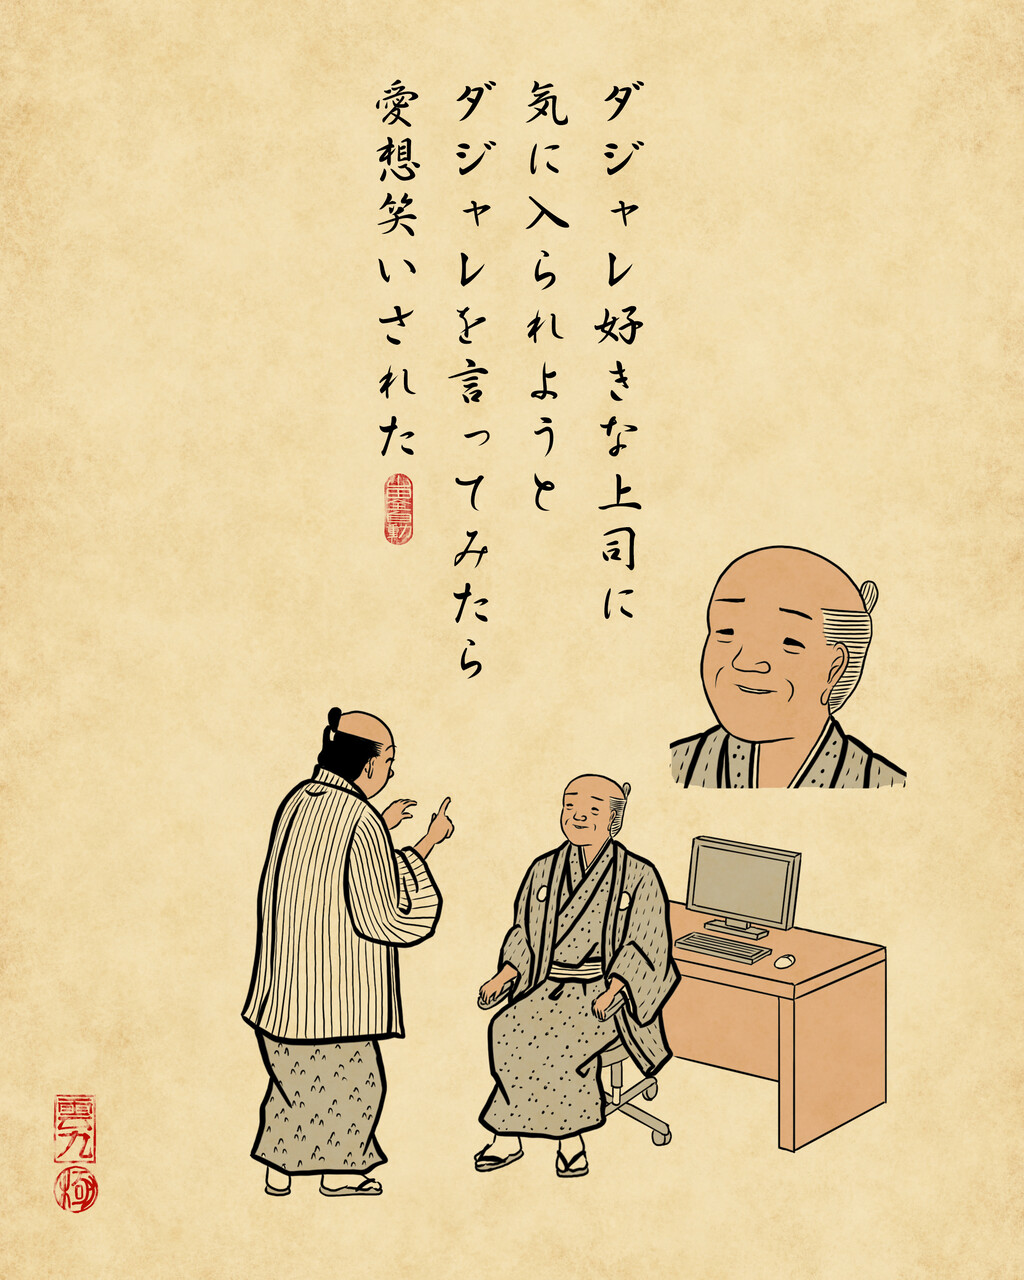 ダジャレ好きな上司に
気に入られようと
ダジャレを言ってみたら
愛想笑いされた